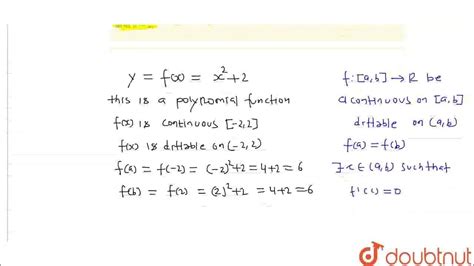 y = f(x) = x²+2
this is a polynomial function
f(x) is continuous [-2,2]
f(x) is drttable on (-2, 2)
f(a) = f(-2) = (-2)²+2 = 4+2 = 6
f(b) = f(2) = (2)²+2 = 4+2 = 6
f: [a,b] → R be
a continuous on [a,b]
drttable on (a,b)
f(a) = f(b)
∃ c ∈ (a,b) such that
f'(c) = 0
doubtnut